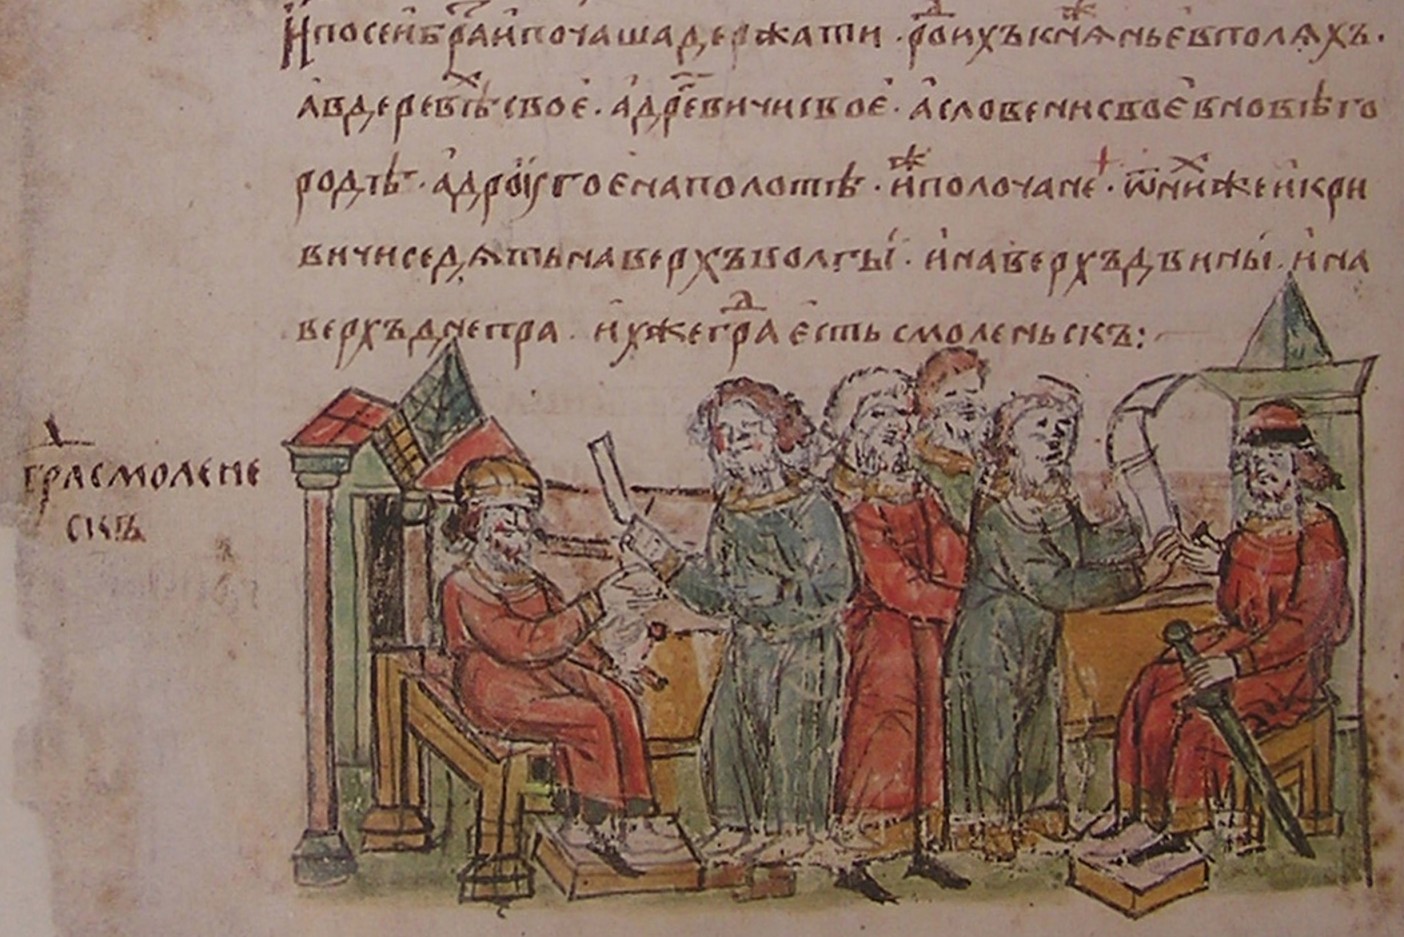 И по сеи братьи почаша держати родъ ихъ кнѧженье в полѧхъ ·
а в деревлѧхъ своє · а дрєговичи своє · а словени своє в новѣго
родѣ · а дрꙋгоє на полотѣ · иже полочане · ѿ нихже и кри
вичи седѧть на верхъ волгы · и на верхъ двины · и на
верхъ днепра · ихже градъ єсть смоленьскъ :
град смолене
скъ